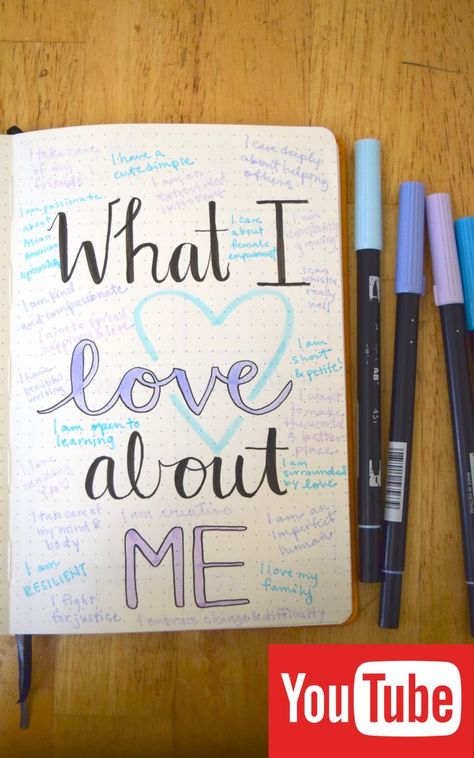 What I
love
about
ME
I take care
of my
friends
I have a
cute dimple
I am an
extroverted
introvert
I care deeply
about helping
others.
I am passionate
about
Asian
American
I care
about
female
empowerment
I am
constantly
growing
I can
whistle
really
well
I am kind
and compassionate
I aim to spread
happiness & love
I have
beautiful
writing
I am
short
& petite!
I am open to
learning
I want
to make
the world
a better
place.
I love
reading
I am
surrounded
by love
I take care of
my mind &
body
I am creative
I am an
imperfect
human
I am
RESILIENT
I love my
family
I fight
for justice.
I embrace change & difficulty
451
YouTube